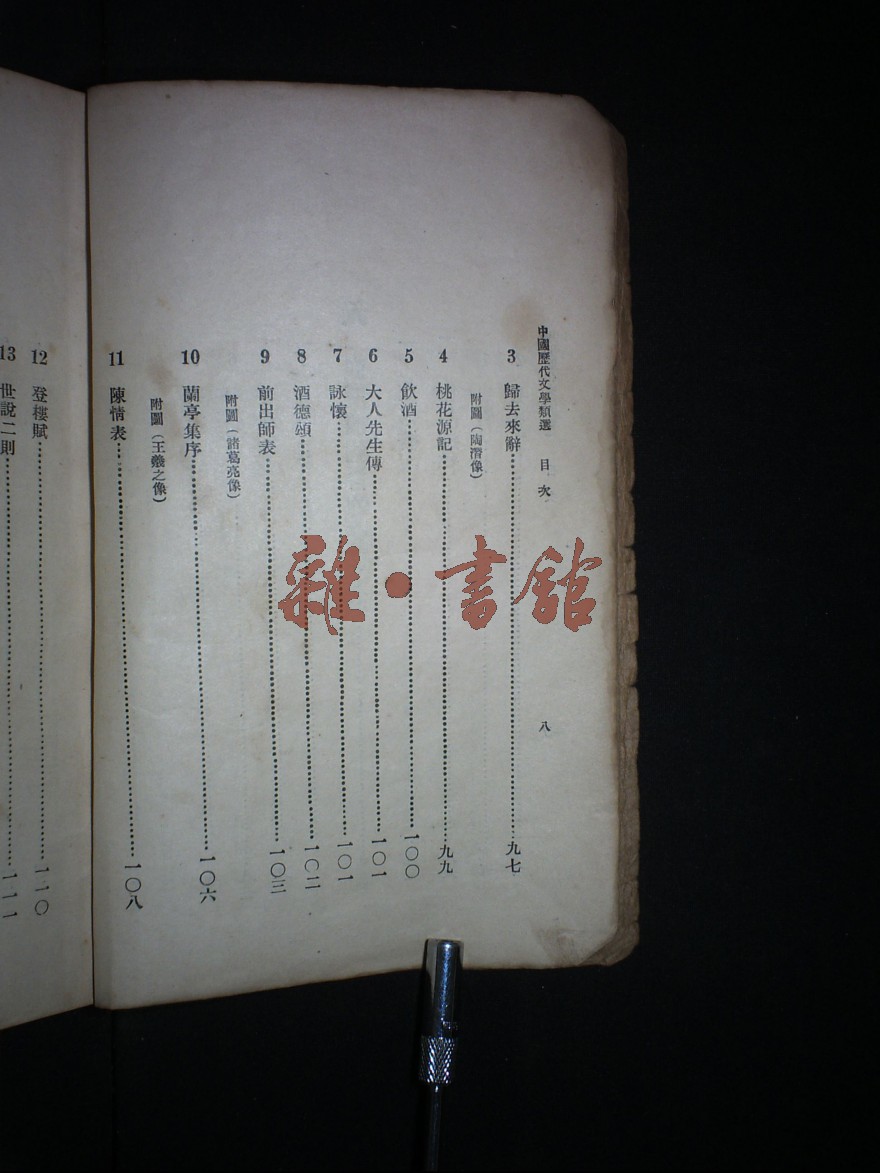 中國歷代文學類選 目次 八
3 歸去來辭……九七
附圖（陶潛像）
4 桃花源記……九九
5 飲酒……一〇〇
6 大人先生傳……一〇一
7 詠懷……一〇一
8 酒德頌……一〇二
9 前出師表……一〇三
附圖（諸葛亮像）
10 蘭亭集序……一〇六
附圖（王羲之像）
11 陳情表……一〇八
12 登樓賦……一一〇
13 世說二則……一一一
雜·書館